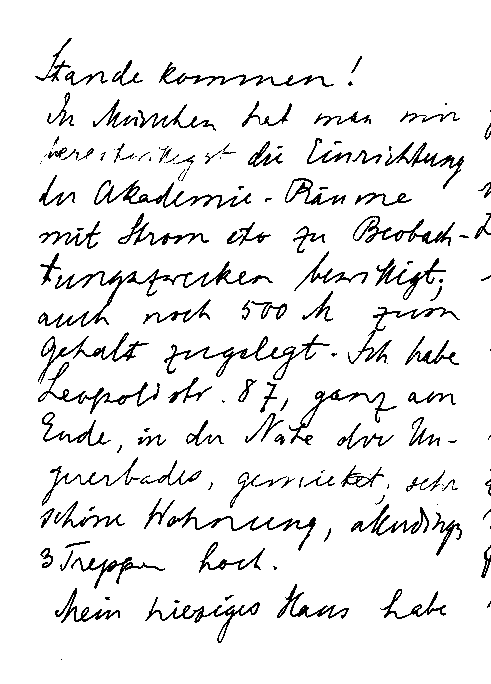 Stande kommen!
In München hat man mir
bereitwilligst die Einrichtung
der Akademie-Räume
mit Strom etc zu Beobach-
tungszwecken bewilligt;
auch noch 500 M zum
Gehalt zugelegt. Ich habe
Leopoldstr. 87, ganz am
Ende, in der Nähe der Un-
gererbades, gemietet, sehr
schöne Wohnung, allerdings
3 Treppen hoch.
Mein hiesiges Haus habe